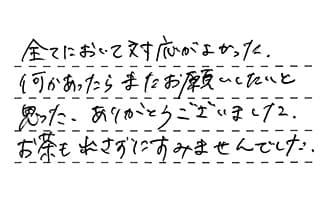 全てにおいて対応がよかった.
何かあったらまたお願いしたいと
思った、ありがとうございました.
お茶も出さずにすみませんでした.